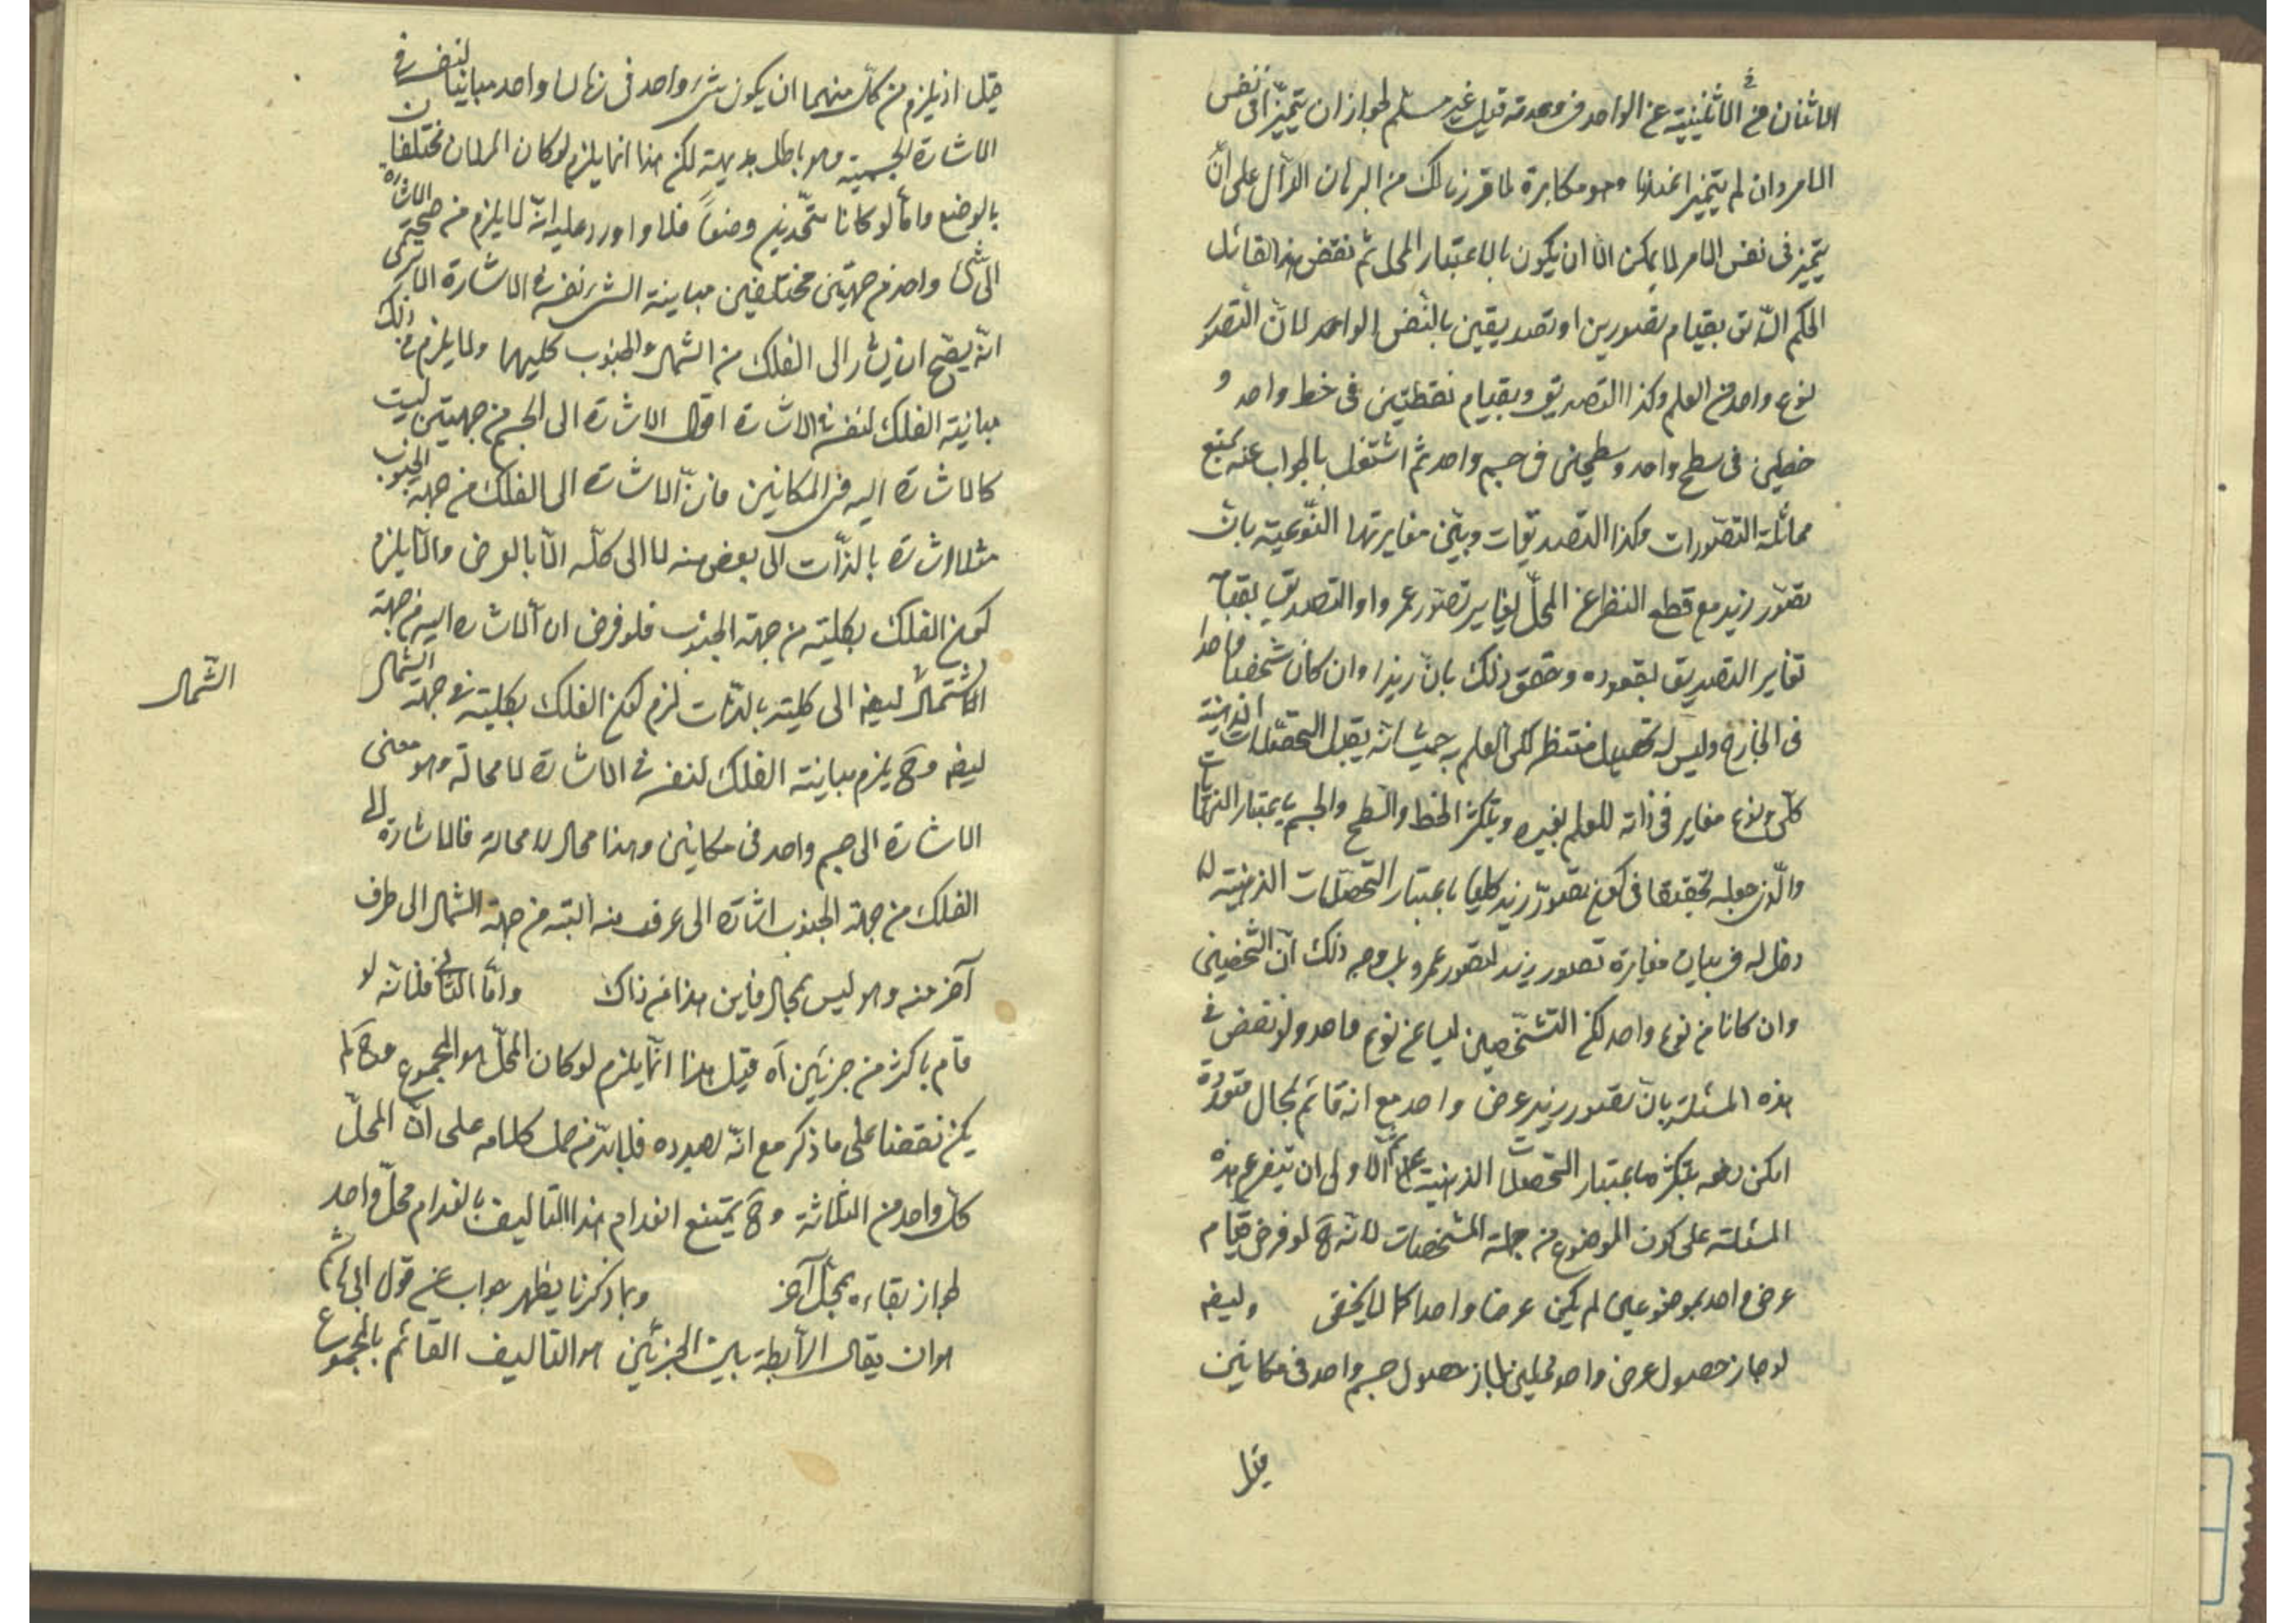 الاثنان في الاثنينية عن الواحد في وحدته قيل غير مسلم لجواز ان يتميزا في نفس
الامر وان لم يتميز اعندنا وهو مكابرة لما قررنا لك من البرهان الدال على ان
يتميز في نفس الامر لا يمكن الا ان يكون بالاعتبار المحل ثم نقض هذا القائل
الحكم بقيام تصورين او تصديقين بالنفس الواحد لان التصور
نوع واحد من العلم وكذا التصديق وبقيام نقطتين في خط واحد و
خطين في سطح واحد وسطحين في جسم واحد ثم اشتغل بالجواب عنه بمنع
مماثلة التصورات وكذا التصديقات وبين مغايرتها النوعية بان
تصور زيد مع قطع النظر عن المحل يغاير تصور عمرو او التصديق بقيامه
تغاير التصديق بقعوده وحقق ذلك بان زيدا وان كان شخصا واحدا
في الخارج وليس له تحصيل منتظر لكن العلم به حيث انه يقبل التحصلات الذهنية
كلي ونوع مغاير في ذاته للعلم بغيره وبتكثر الخط والسطح والجسم باعتبار النهايات
والذي جعله تحقيقا في كون تصور زيد كليا باعتبار التحصلات الذهنية لا
دخل له في بيان مغايرة تصور زيد لتصور عمرو بل وجه ذلك ان الشخصين
وان كانا من نوع واحد لكن التشخصين ليسا من نوع واحد ولو نقض في
هذه المسئلة بان تصور زيد عرض واحد مع انه قائم بمحال متعددة
امكن دفعه بتكثره باعتبار التحصلات الذهنية ثم الاولى ان يتفرع هذه
المسئلة على كون الموضوع من جملة المشخصات لانه ح لو فرض قيام
عرض واحد بموضوعين لم يكن عرضا واحدا كما لا يخفى وايضه
لو جاز حصول عرض واحد لمحلين لجاز حصول جسم واحد في مكانين
قيل
قيل اذ يلزم من كل منهما ان يكون شيء واحد في زمان واحد مباينا لنفسه في
الاشارة الحسية وهو باطل بديهة لكن هذا انما يلزم لو كان المحلان مختلفان
بالوضع واما لو كانا متحدين وضعا فلا واورد عليه انه لا يلزم من صحة الاشارة
الى شيء واحد من جهتين مختلفين مباينة الشيء نفسه في الاشارة الا ترى
انه يصح ان يشار الى الفلك من الشمال والجنوب كليهما ولا يلزم من ذلك
مباينة الفلك لنفسه في الاشارة اقول الاشارة الى الجسم من جهتين ليست
كالاشارة اليه في المكانين فان الاشارة الى الفلك من جهة الجنوب
مثلا اشارة بالذات الى بعض منه لا الى كله الا بالعرض والا يلزم
كون الفلك بكليته من جهة الجنوب فلو فرض ان الاشارة اليه من جهة
الشمال ايضه الى كليته بالذات لزم كون الفلك بكليته في جهة الشمال
الشمال
ايضه وح يلزم مباينة الفلك لنفسه في الاشارة لا محالة وهو معنى
الاشارة الى جسم واحد في مكانين وهذا محال لا محالة فالاشارة الى
الفلك من جهة الجنوب اشارة الى طرف منه البتة من جهة الشمال الى طرف
آخر منه وهو ليس بمحال فاين هذا من ذاك واما الثاني فلانه لو
قام باكثر من جزئين آه قيل هذا انما يلزم لو كان المحل هو المجموع وح لم
يكن نقضا على ما ذكر مع انه بصدده فلا بد من حمل كلامه على ان المحل
كل واحد من الثلاثة وح يمتنع انعدام هذا التاليف بانعدام محل واحد
لجواز بقاءه بمحل آخر وبما ذكرنا يظهر جواب عن قول ابي هاشم
هو ان يقال الرابطة بين الجزئين هو التاليف القائم بالمجموع